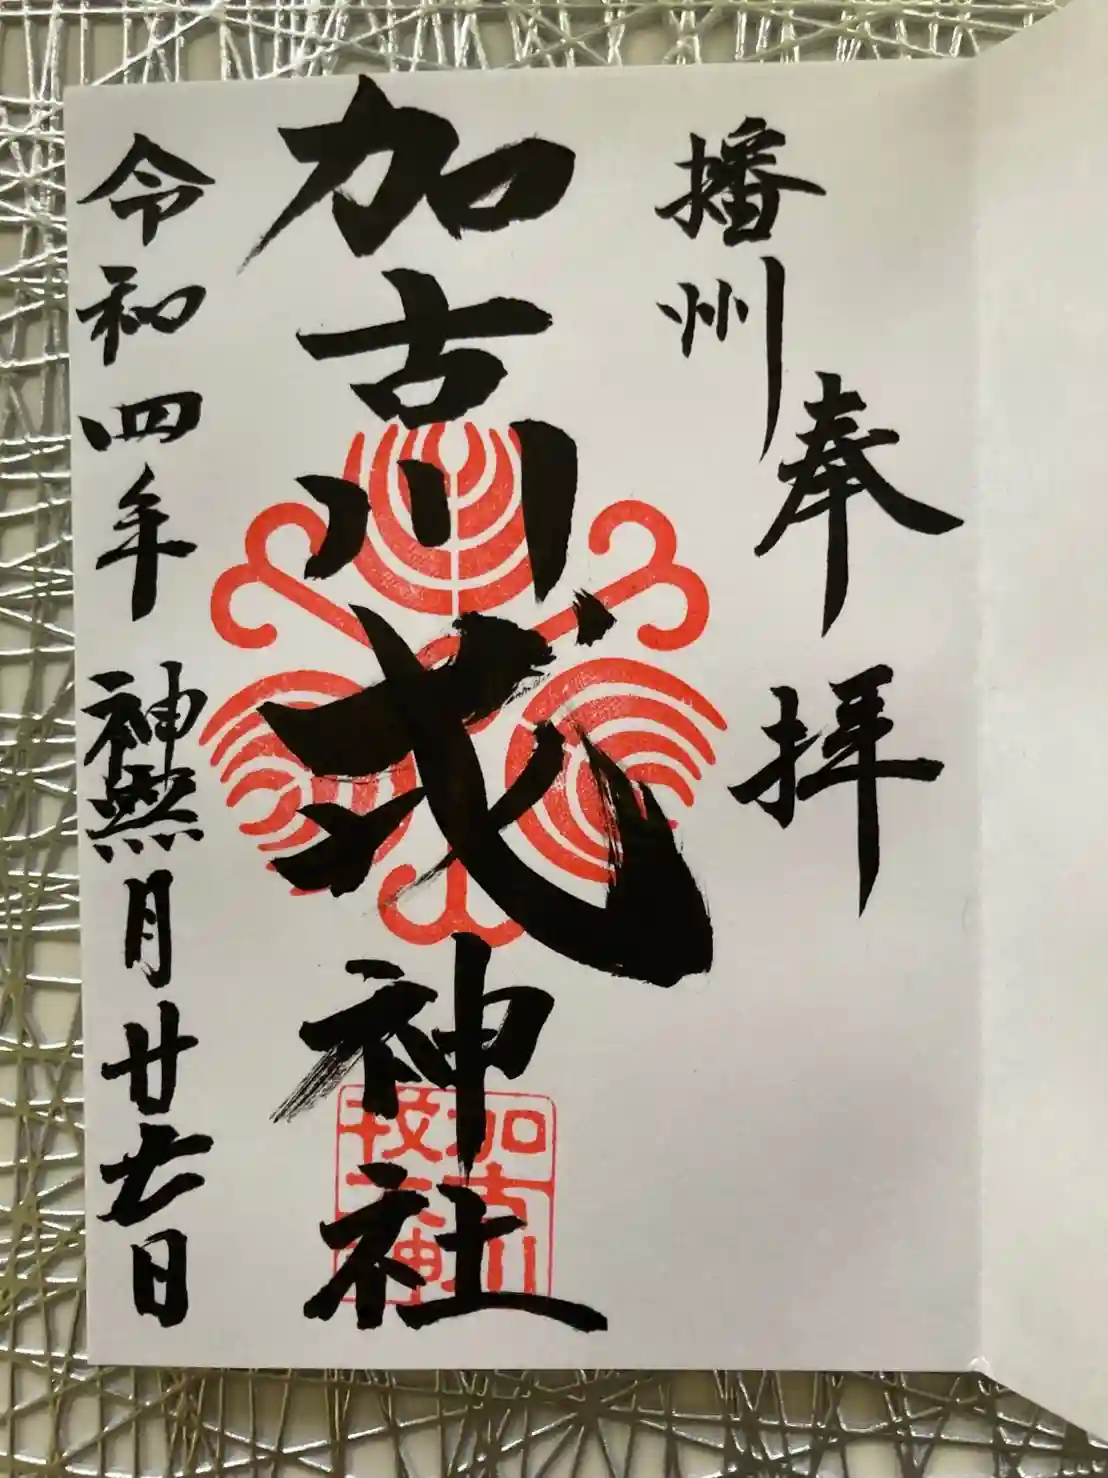 播州
奉拝
加古川戎神社
令和四年 神無月廿七日
加古川